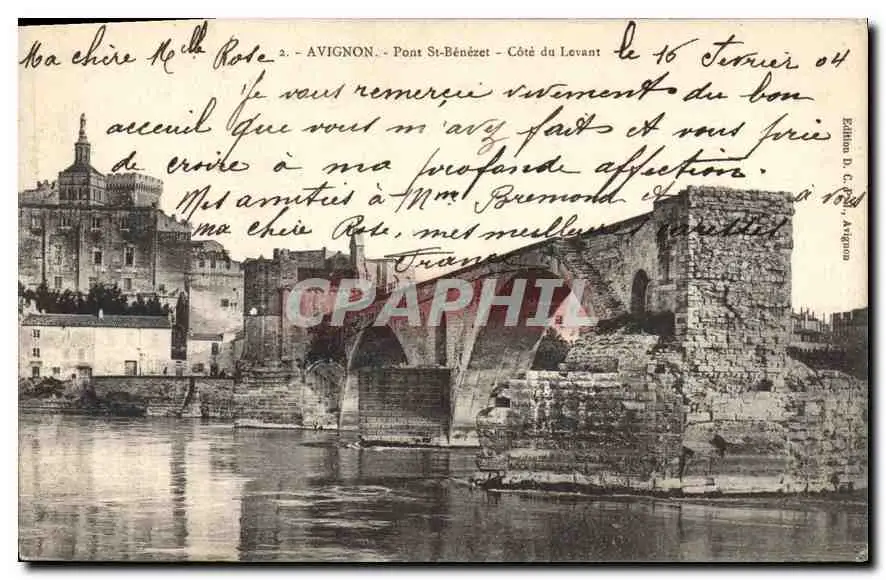 2. - AVIGNON. - Pont St-Bénézet - Côté du Levant
Ma chère Mlle Rose le 16 Fevrier 04
Je vous remercie vivement du bon
accueil que vous m'avez fait et vous prie
de croire à ma profonde affection.
Mes amitiés à Mme Bremond et à vous
ma chère Rose, mes meilleures caresses
France
Edition D. C. , Avignon
CARTAPHILE